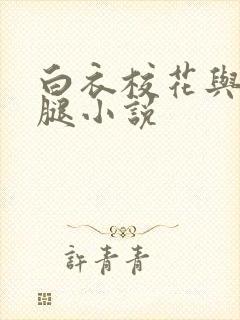 白衣校花與
腿小説
許青青